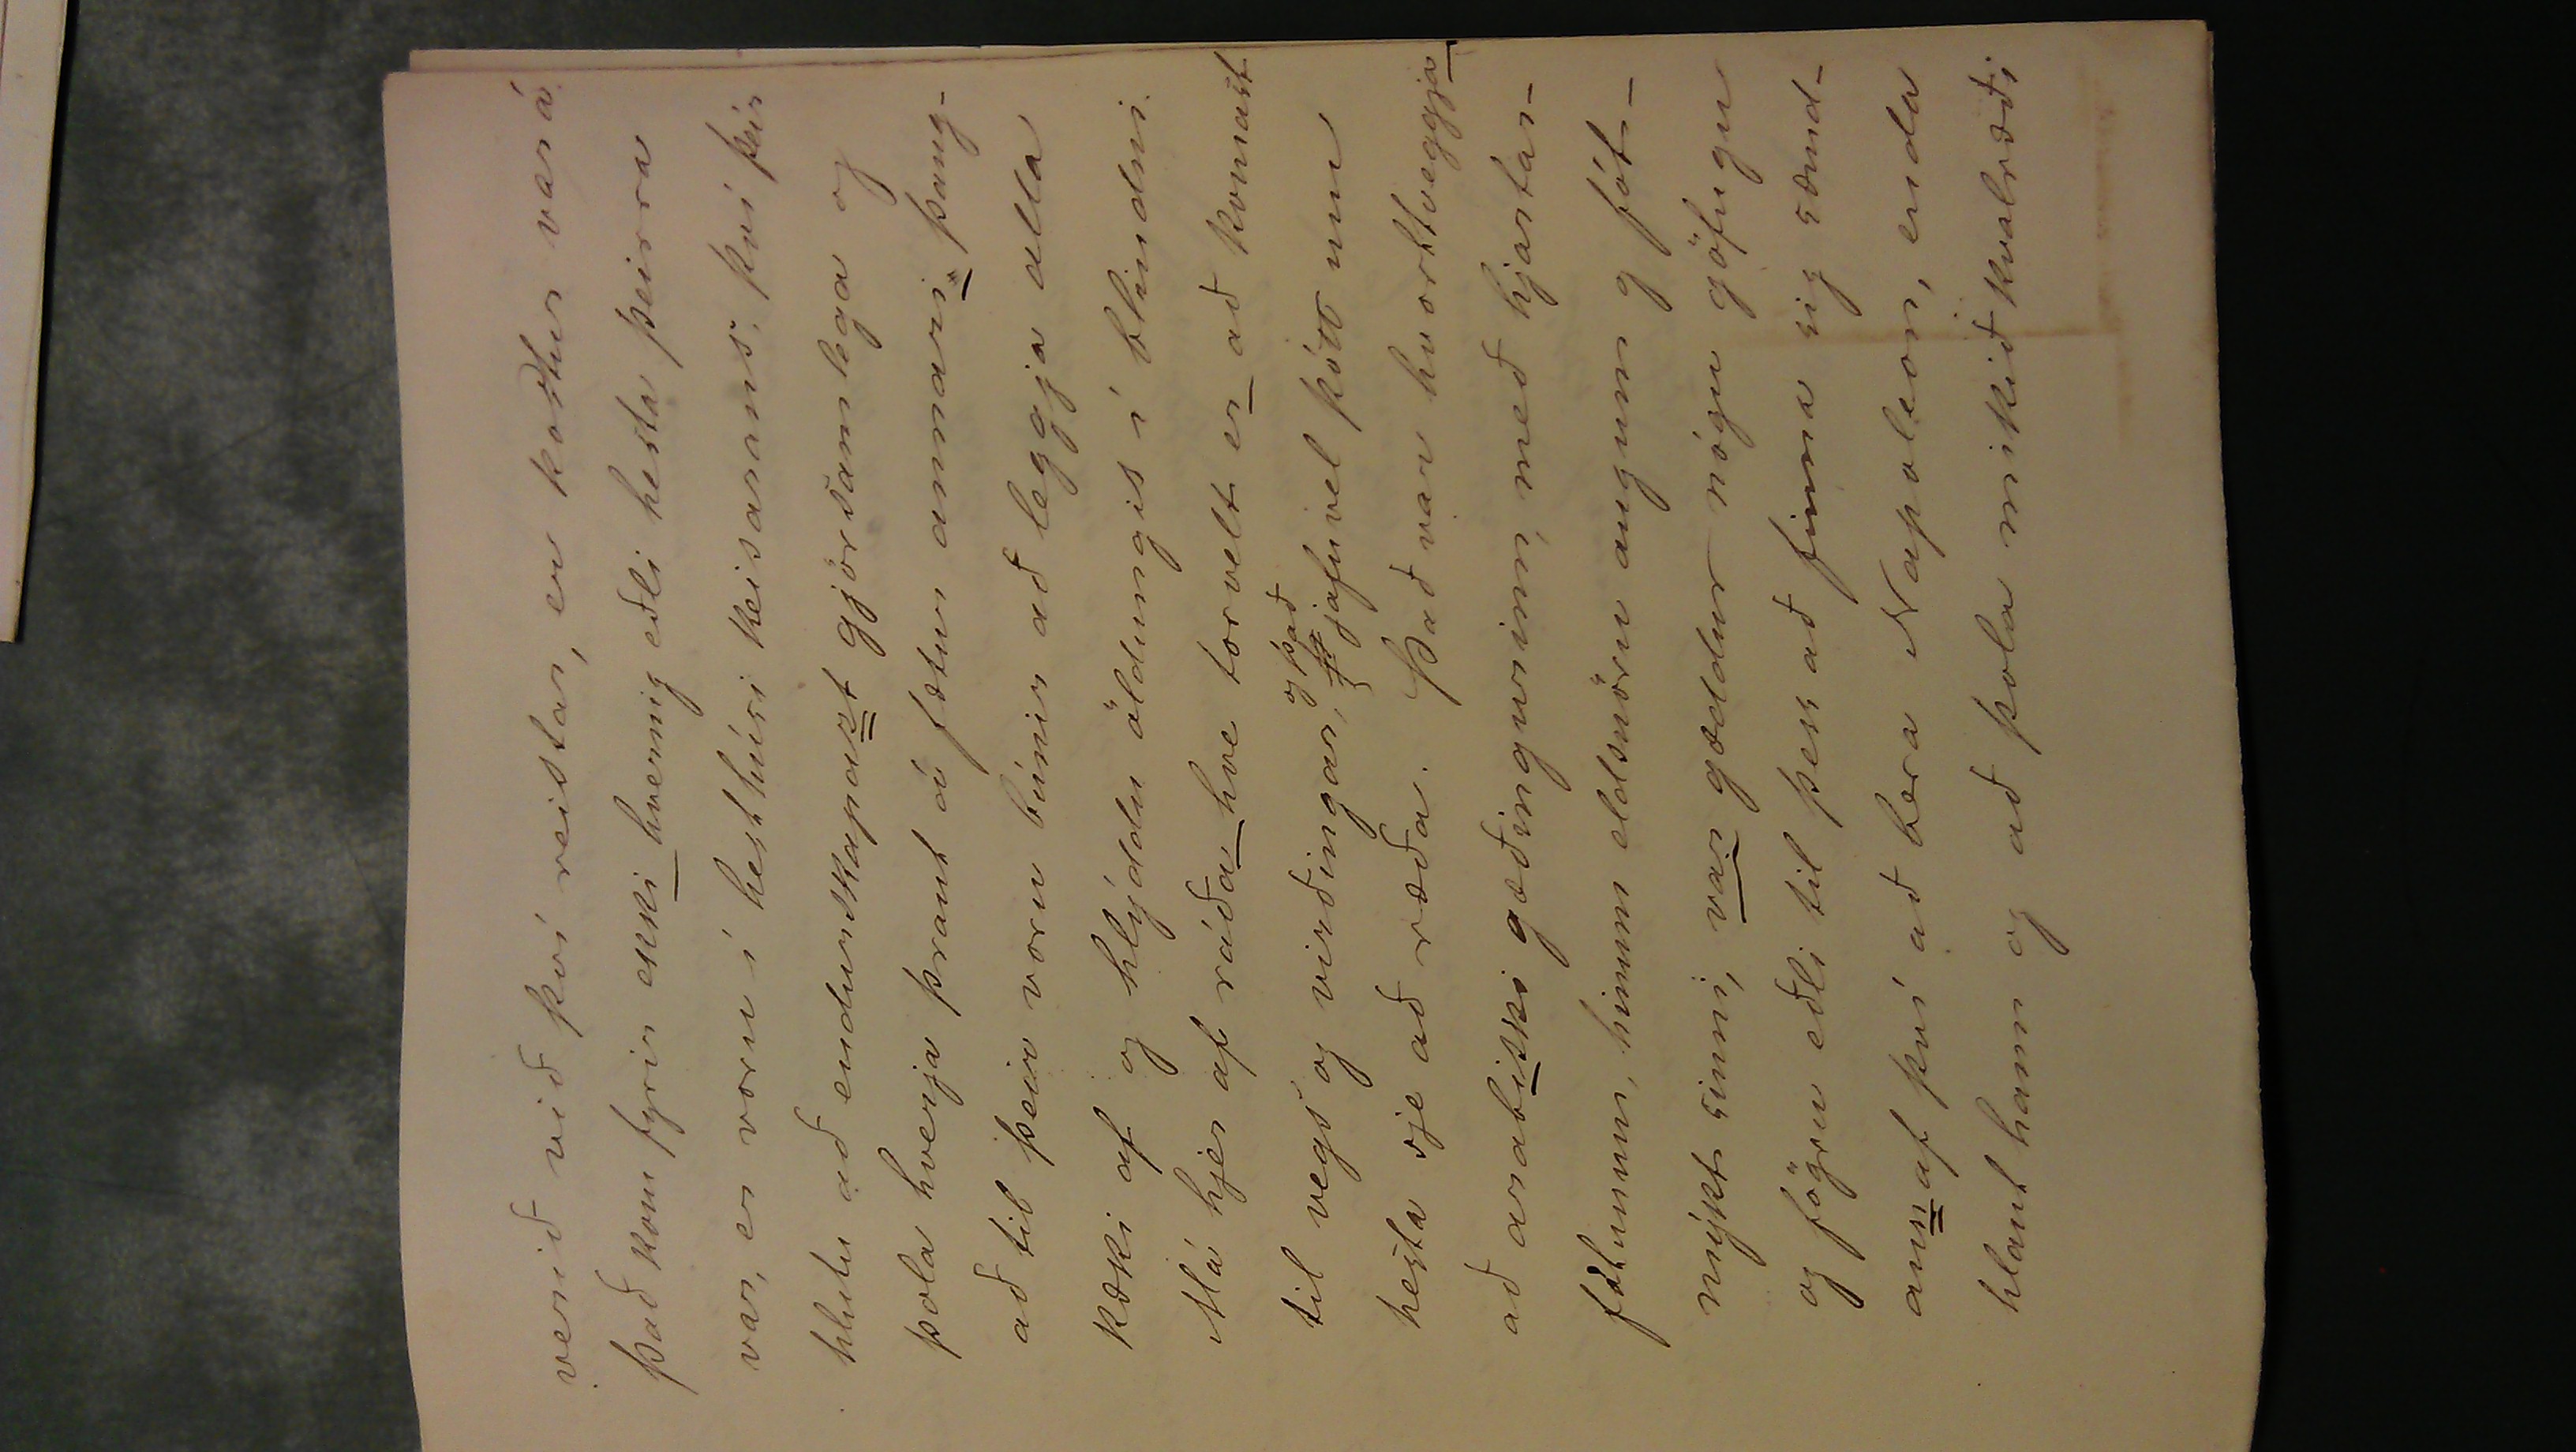 verið við því reistar, er kostur var á.
Það kom fyrir ekki hvernig eðli hesta þeirra
var, er voru í hesthúsi keisarans, því þeir
hlutu að endurskapazt gjörsamlega og
þola hverja þraut á fætur annari þang-
að til þeir voru búnir að leggja alla
kæki af og hlýddu öldungis í blindni.
Má hjer af ráða hve torvelt er að komast
til vegs og virðingar, og það jafnvel þótt um
hesta sje að ræða. Það var hvorttveggja
að arabiski gæðingurinn, með hjartar-
fótunum, hinum eldsnöru augum og fót-
mýkt sinni, var gæddur nógu göfugu
og fögru eðli til þess að finna sig sæmd-
ann af því að bera Napoleon, enda
hlaut hann og að þola mikið kvalræði